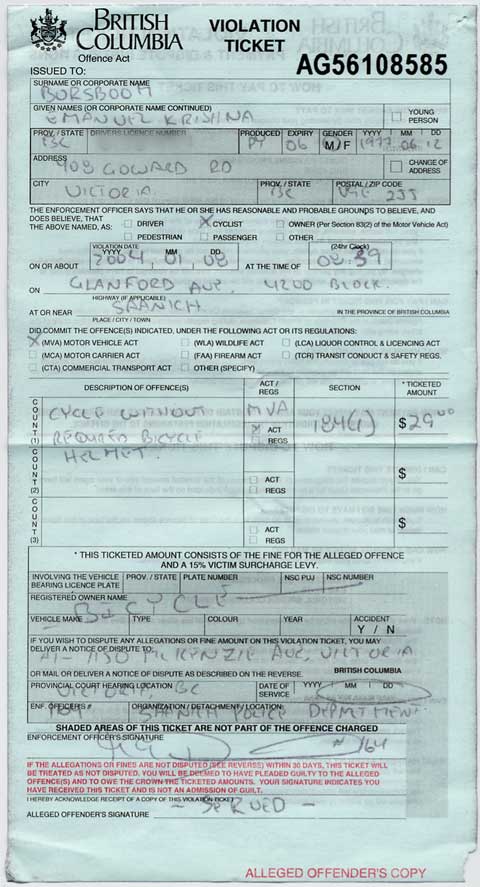 BRITISH COLUMBIA
Offence Act
VIOLATION TICKET
AG56108585
ISSUED TO:
SURNAME OR CORPORATE NAME
BORSBOOM
GIVEN NAMES (OR CORPORATE NAME CONTINUED)
EMANUEL KRISHNA
YOUNG PERSON
PROV. / STATE DRIVERS LICENCE NUMBER PRODUCED EXPIRY GENDER YYYY MM DD
BC 06 M/F 1977 06 12
ADDRESS
908 GOWARD RD
CHANGE OF ADDRESS
CITY PROV. / STATE POSTAL / ZIP CODE
VICTORIA BC
THE ENFORCEMENT OFFICER SAYS THAT HE OR SHE HAS REASONABLE AND PROBABLE GROUNDS TO BELIEVE, AND
DOES BELIEVE, THAT
THE ABOVE NAMED, AS:
DRIVER X CYCLIST OWNER (Per Section 83(2) of the Motor Vehicle Act)
PEDESTRIAN PASSENGER OTHER
VIOLATION DATE
YYYY MM DD (24hr Clock)
ON OR ABOUT 2004 01 08 AT THE TIME OF 08:39
ON GLANFORD AVE. 4200 BLOCK
HIGHWAY (IF APPLICABLE)
AT OR NEAR SAANICH IN THE PROVINCE OF BRITISH COLUMBIA
PLACE / CITY / TOWN
DID COMMIT THE OFFENCE(S) INDICATED, UNDER THE FOLLOWING ACT OR ITS REGULATIONS:
X (MVA) MOTOR VEHICLE ACT (WLA) WILDLIFE ACT (LCA) LIQUOR CONTROL & LICENCING ACT
(MCA) MOTOR CARRIER ACT (FAA) FIREARM ACT (TCR) TRANSIT CONDUCT & SAFETY REGS.
(CTA) COMMERCIAL TRANSPORT ACT OTHER (SPECIFY)
DESCRIPTION OF OFFENCE(S) ACT / REGS SECTION * TICKETED AMOUNT
COUNT (1) CYCLE WITHOUT MVA 184(1) $29.00
REQUIRED BICYCLE X ACT REGS
HELMET.
COUNT (2) ACT REGS $
COUNT (3) ACT REGS $
* THIS TICKETED AMOUNT CONSISTS OF THE FINE FOR THE ALLEGED OFFENCE
AND A 15% VICTIM SURCHARGE LEVY.
INVOLVING THE VEHICLE BEARING LICENCE PLATE PROV. / STATE PLATE NUMBER NSC PUJ NSC NUMBER
REGISTERED OWNER NAME
BICYCLE
VEHICLE MAKE TYPE COLOUR YEAR ACCIDENT
Y / N
IF YOU WISH TO DISPUTE ANY ALLEGATIONS OR FINE AMOUNT ON THIS VIOLATION TICKET, YOU MAY
DELIVER A NOTICE OF DISPUTE TO:
MCKENZIE AVE, VICTORIA
BRITISH COLUMBIA
OR MAIL OR DELIVER A NOTICE OF DISPUTE AS DESCRIBED ON THE REVERSE.
PROVINCIAL COURT HEARING LOCATION DATE OF SERVICE YYYY MM DD
VICTORIA BC
ENF. OFFICER'S # ORGANIZATION / DETACHMENT / LOCATION:
164 SAANICH POLICE DEPARTMENT
SHADED AREAS OF THIS TICKET ARE NOT PART OF THE OFFENCE CHARGED
ENFORCEMENT OFFICER'S SIGNATURE
164
IF THE ALLEGATIONS OR FINES ARE NOT DISPUTED (SEE REVERSE) WITHIN 30 DAYS, THIS TICKET WILL
BE TREATED AS NOT DISPUTED. YOU WILL BE DEEMED TO HAVE PLEADED GUILTY TO THE ALLEGED
OFFENCE(S) AND TO OWE THE CROWN THE TICKETED AMOUNTS. YOUR SIGNATURE INDICATES YOU
HAVE RECEIVED THIS TICKET AND IS NOT AN ADMISSION OF GUILT.
I HEREBY ACKNOWLEDGE RECEIPT OF A COPY OF THIS VIOLATION TICKET
- SERVED -
ALLEGED OFFENDER'S SIGNATURE
ALLEGED OFFENDER'S COPY